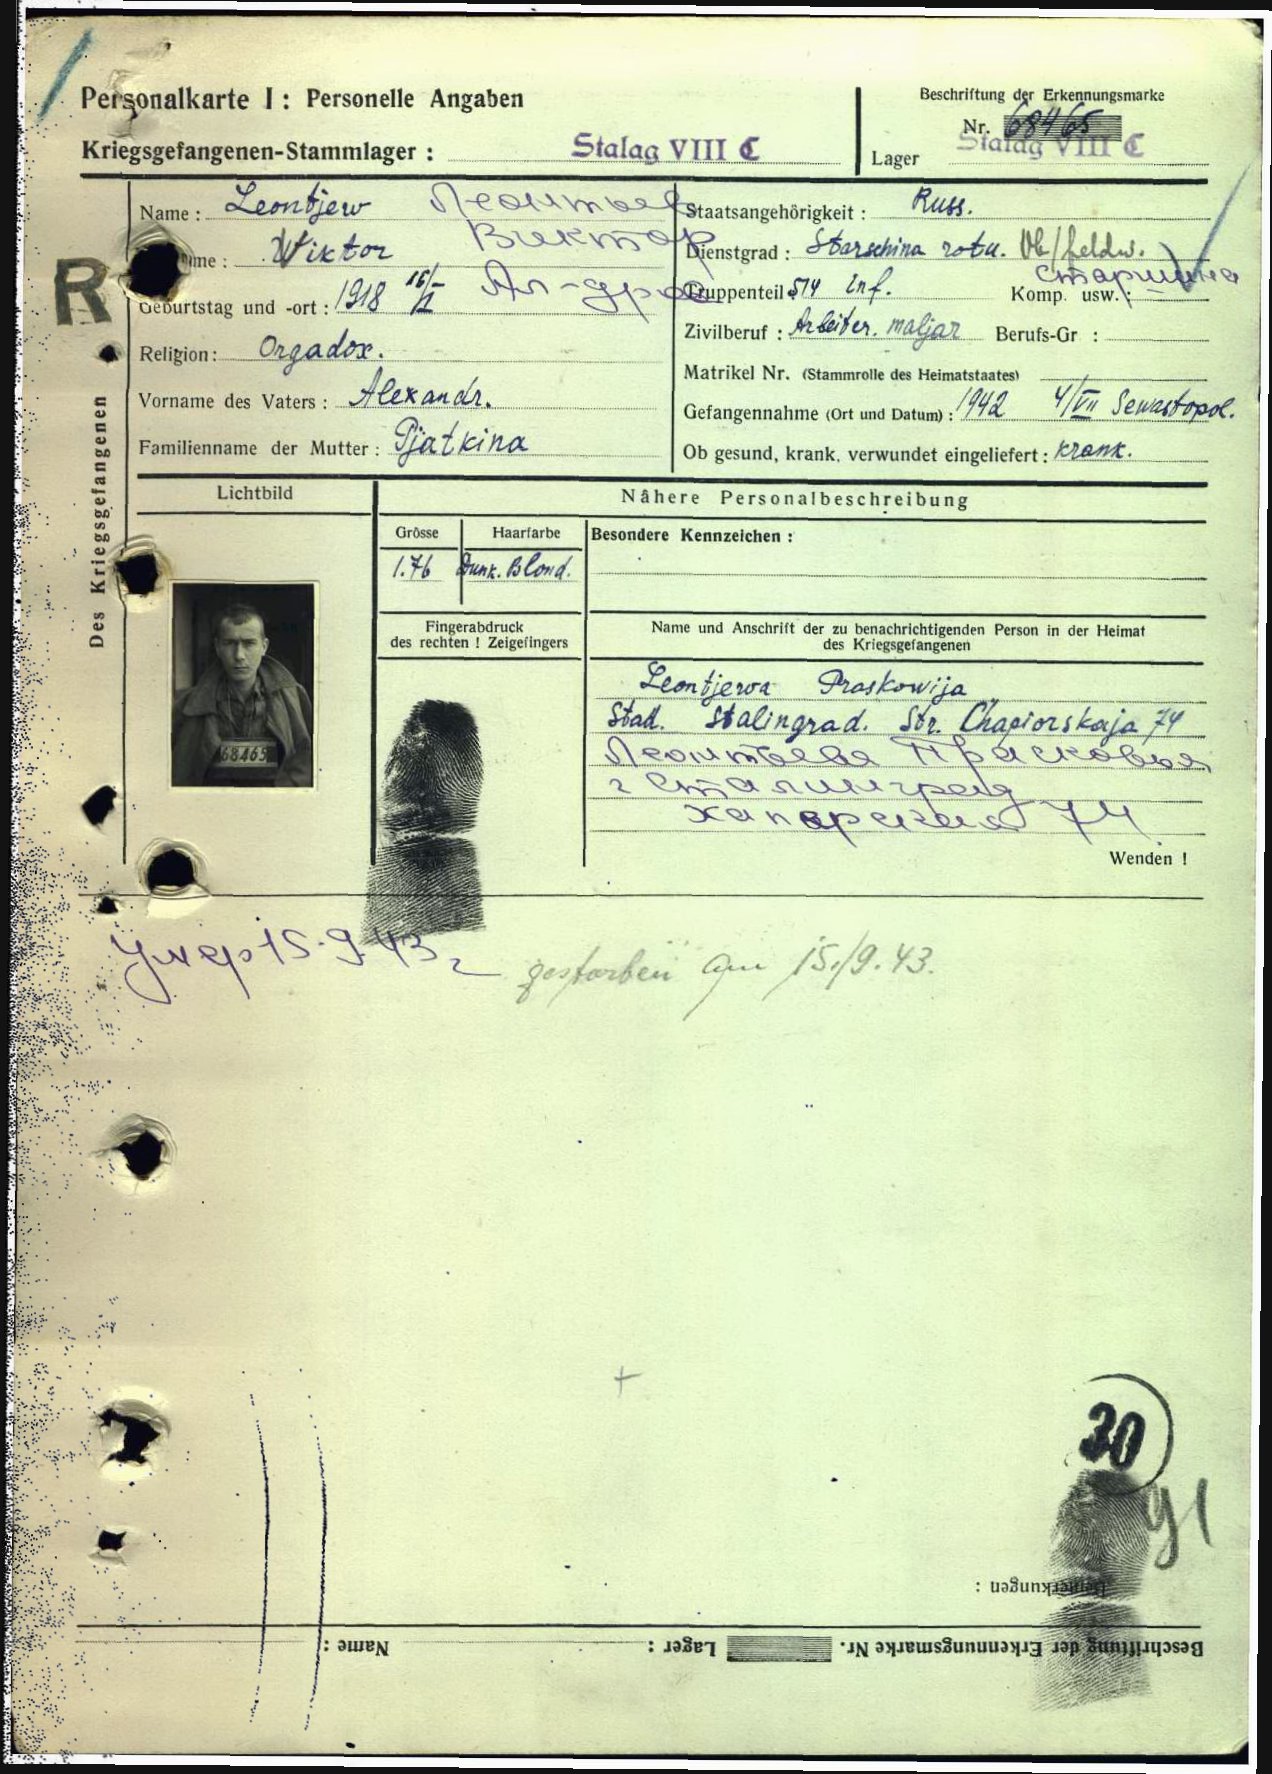 Personalkarte I: Personelle Angaben
Kriegsgefangenen-Stammlager: Stalag VIII C
Beschriftung der Erkennungsmarke
Nr. 68465
Lager Stalag VIII C
R
Des Kriegsgefangenen
Name: Leontjew Леонтьев
Wiktor Виктор
Geburtstag und -ort: 1918 Ал-дров
Religion: Orgadox.
Vorname des Vaters: Alexandr.
Familienname der Mutter: Pjatkina
Staatsangehörigkeit: Russ.
Dienstgrad: Starschina rotu. Ob/feldw.
старшина
Truppenteil 514 Inf. Komp. usw.:
Zivilberuf: Arbeiter. maljar Berufs-Gr:
Matrikel Nr. (Stammrolle des Heimatstaates)
Gefangennahme (Ort und Datum): 1942 4/VII Sewastopol.
Ob gesund, krank, verwundet eingeliefert: krank.
Lichtbild
68465
Nähere Personalbeschreibung
Grösse Haarfarbe Besondere Kennzeichen:
1.76 Dunk. Blond.
Fingerabdruck
des rechten! Zeigefingers
Name und Anschrift der zu benachrichtigenden Person in der Heimat
des Kriegsgefangenen
Leontjewa Praskowija
Stad. Stalingrad. Str. Chapiorskaja 74
Леонтьева Прасковья
г Сталинград
74
Wenden!
Умер 15.9.43 г
gestorben am 15./9.43.
30
Bemerkungen:
Beschriftung der Erkennungsmarke Nr. Lager: Name: